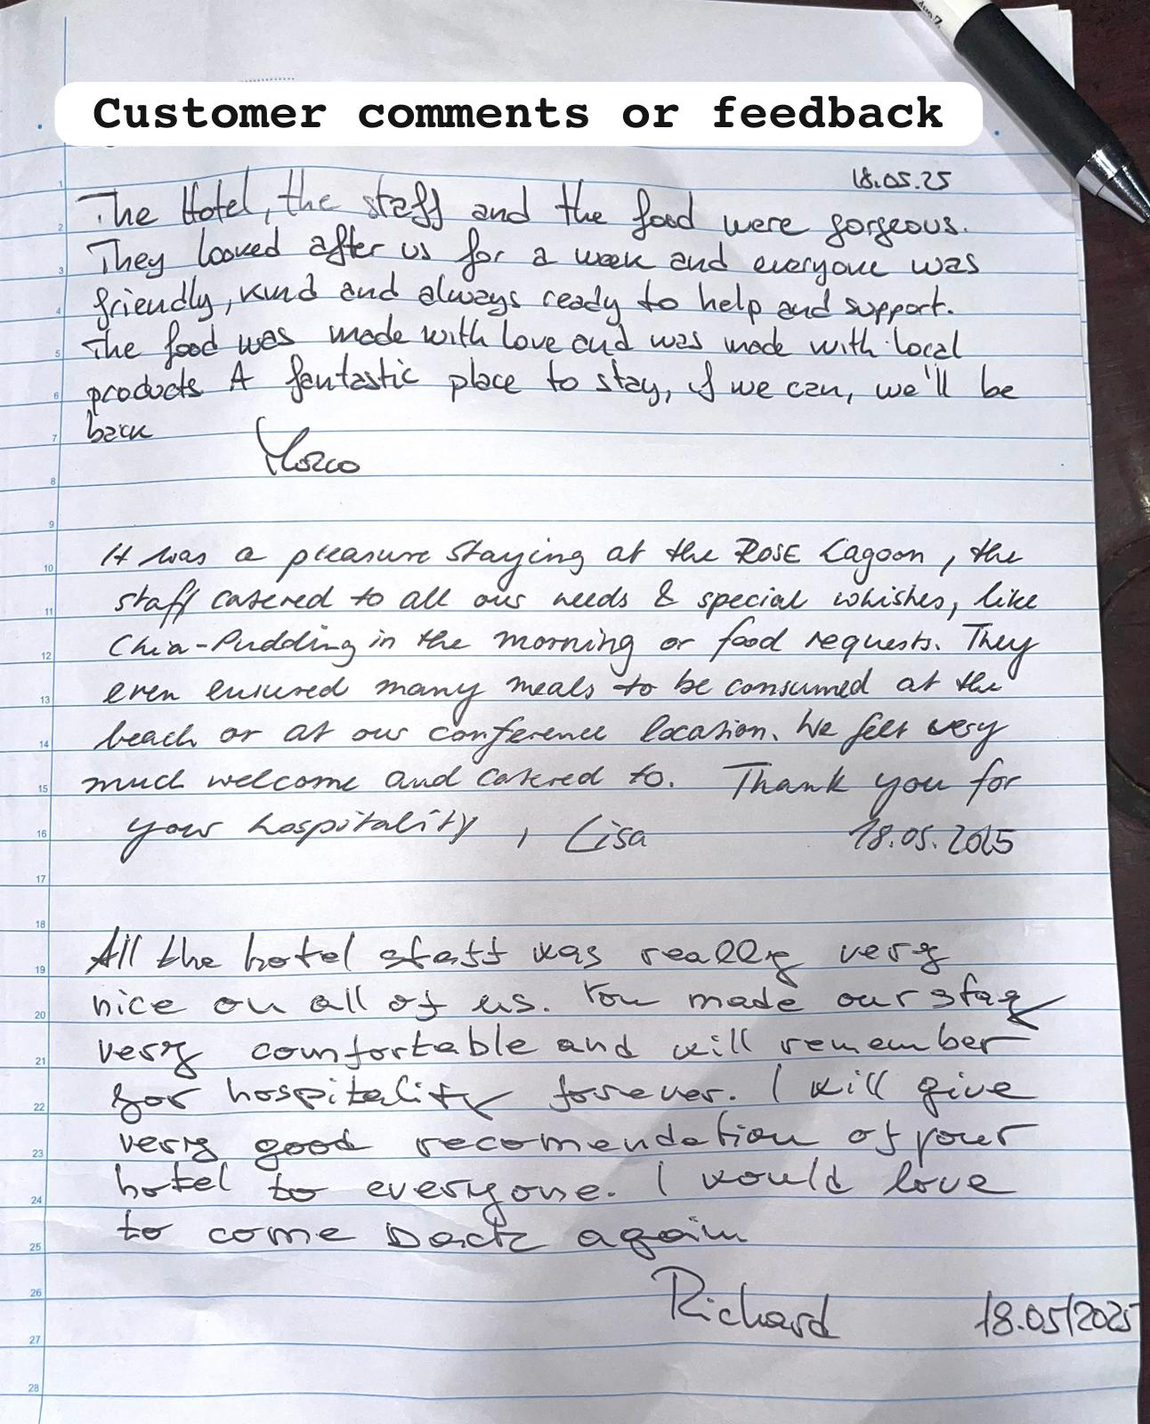 Customer comments or feedback
18.05.25
The Hotel, the staff and the food were gorgeous.
They looked after us for a week and everyone was
friendly, kind and always ready to help and support.
The food was made with love and was made with local
products A fantastic place to stay, if we can, we'll be
back
It was a pleasure staying at the ROSE Lagoon, the
staff catered to all our needs & special whishes, like
Chia-Pudding in the morning or food requests. They
even ensured many meals to be consumed at the
beach or at our conference location. We felt very
much welcome and catered to. Thank you for
your hospitality, Lisa 18.05.2025
All the hotel staff was really very
nice on all of us. You made our stay
very comfortable and will remember
for hospitality forever. I will give
very good recomendation of your
hotel to everyone. I would love
to come back again
Richard 18.05/2025